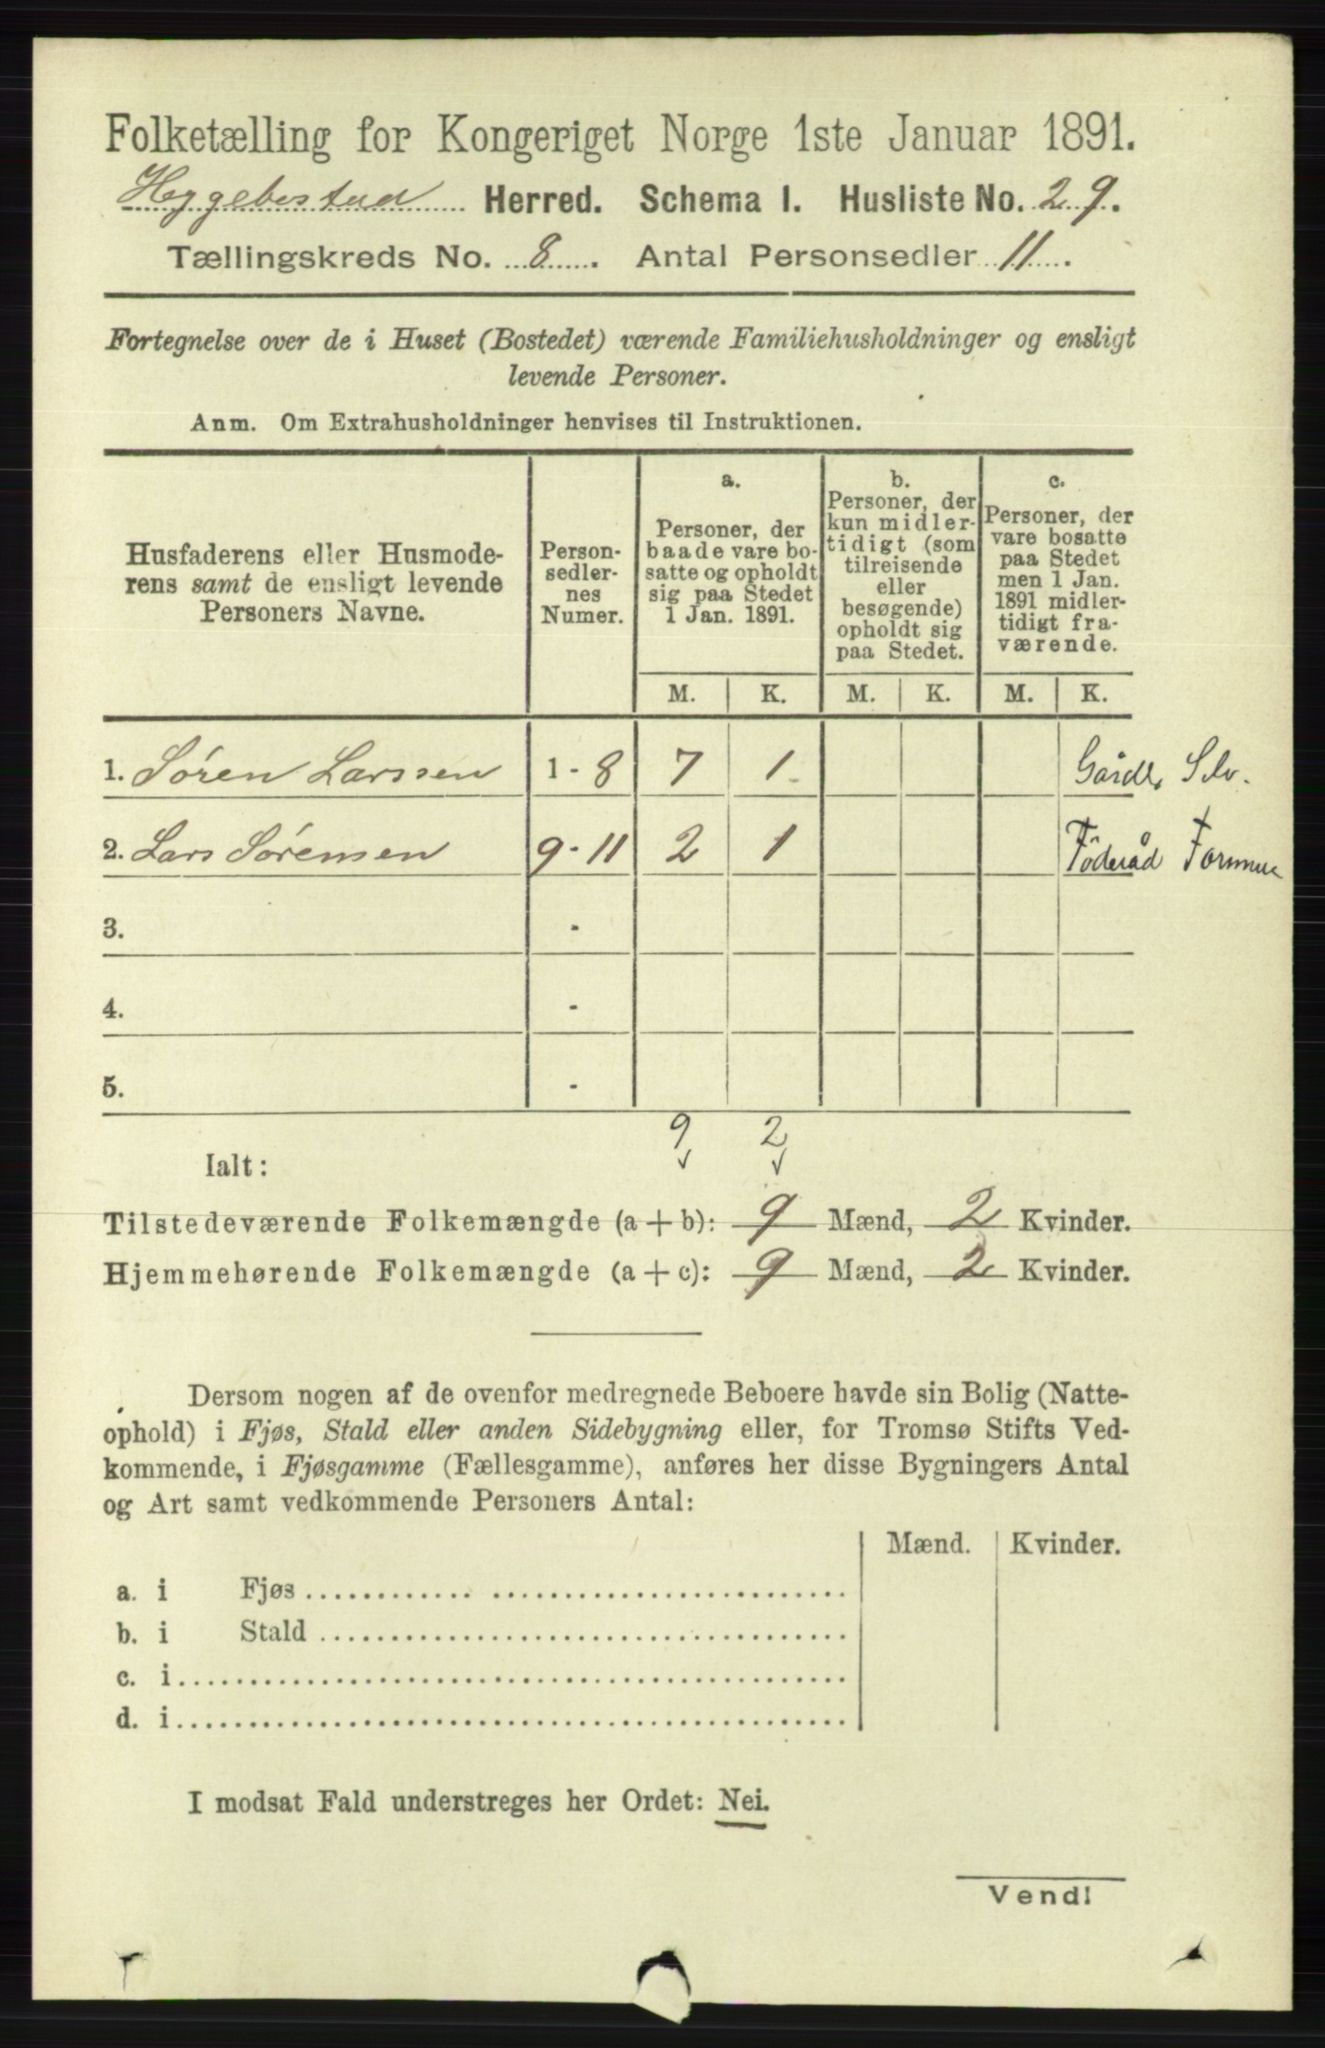 Folketælling for Kongeriget Norge 1ste Januar 1891.
Hæggebostad Herred. Schema I. Husliste No. 29.
Tællingskreds No. 8. Antal Personsedler 11.
Fortegnelse over de i Huset (Bostedet) værende Familiehusholdninger og ensligt
levende Personer.
Anm. Om Extrahusholdninger henvises til Instruktionen.
Husfaderens eller Husmode-
rens samt de ensligt levende
Personers Navne.
Person-
sedler-
nes
Numer.
a.
Personer, der
baade vare bo-
satte og opholdt
sig paa Stedet
1 Jan. 1891.
b.
Personer, der
kun midler-
tidigt (som
tilreisende
eller
besøgende)
opholdt sig
paa Stedet.
c.
Personer, der
vare bosatte
paa Stedet
men 1 Jan.
1891 midler-
tidigt fra-
værende.
M. K. M. K. M. K.
1. Søren Larssen 1 - 8 7 1 Gårdb. Selv.
2. Lars Sørensen 9 - 11 2 1 Föderåd Formue
3. -
4. -
5. -
9 2
Ialt:
Tilstedeværende Folkemængde (a + b): 9 Mænd, 2 Kvinder.
Hjemmehørende Folkemængde (a + c): 9 Mænd, 2 Kvinder.
Dersom nogen af de ovenfor medregnede Beboere havde sin Bolig (Natte-
ophold) i Fjøs, Stald eller anden Sidebygning eller, for Tromsø Stifts Ved-
kommende, i Fjøsgamme (Fællesgamme), anføres her disse Bygningers Antal
og Art samt vedkommende Personers Antal:
Mænd. Kvinder.
a. i Fjøs
b. i Stald
c. i
d. i
I modsat Fald understreges her Ordet: Nei.
Vend!